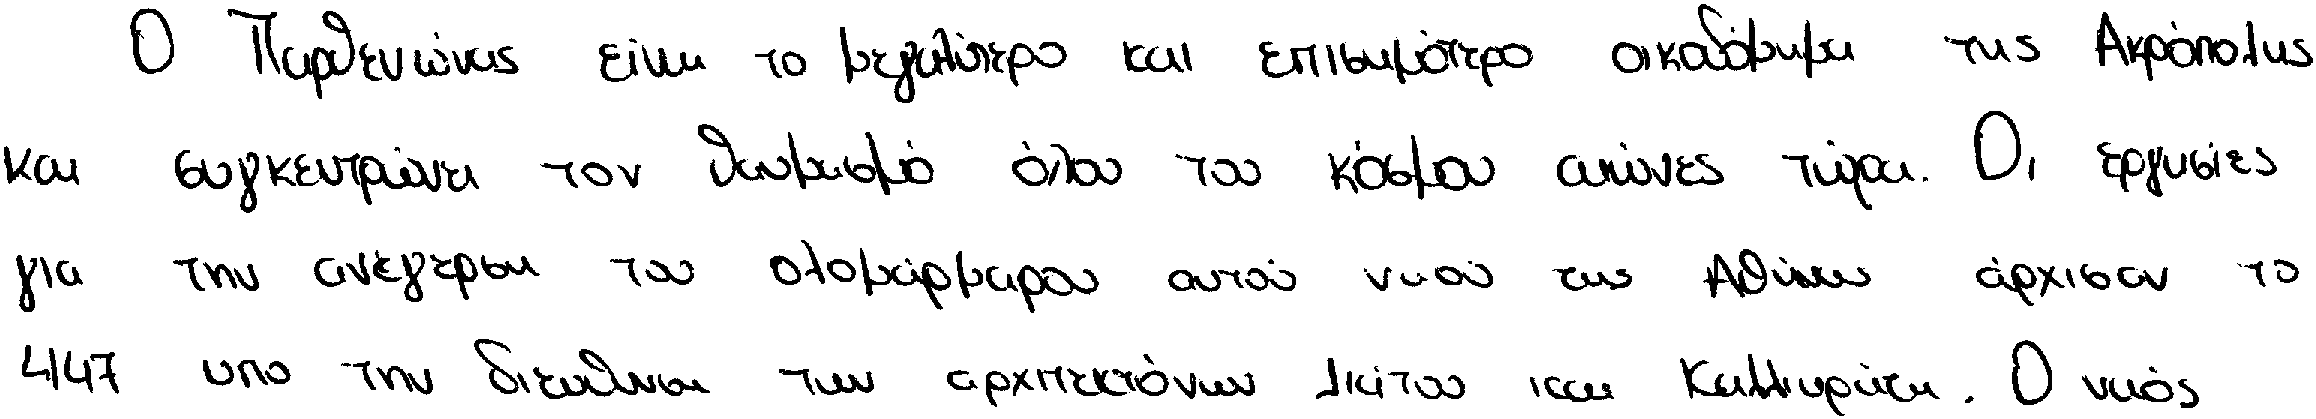 Ο Παρθενώνας είναι το μεγαλύτερο και επισημότερο οικοδόμημα της Ακρόπολης
και συγκεντρώνει τον θαυμασμό όλου του κόσμου αιώνες τώρα. Οι εργασίες
για την ανέγερση του ολομάρμαρου αυτού ναού της Αθήνας άρχισαν το
447 υπο την διεύθυνση των αρχιτεκτόνων Ικτίνου και Καλλικράτη. Ο ναός